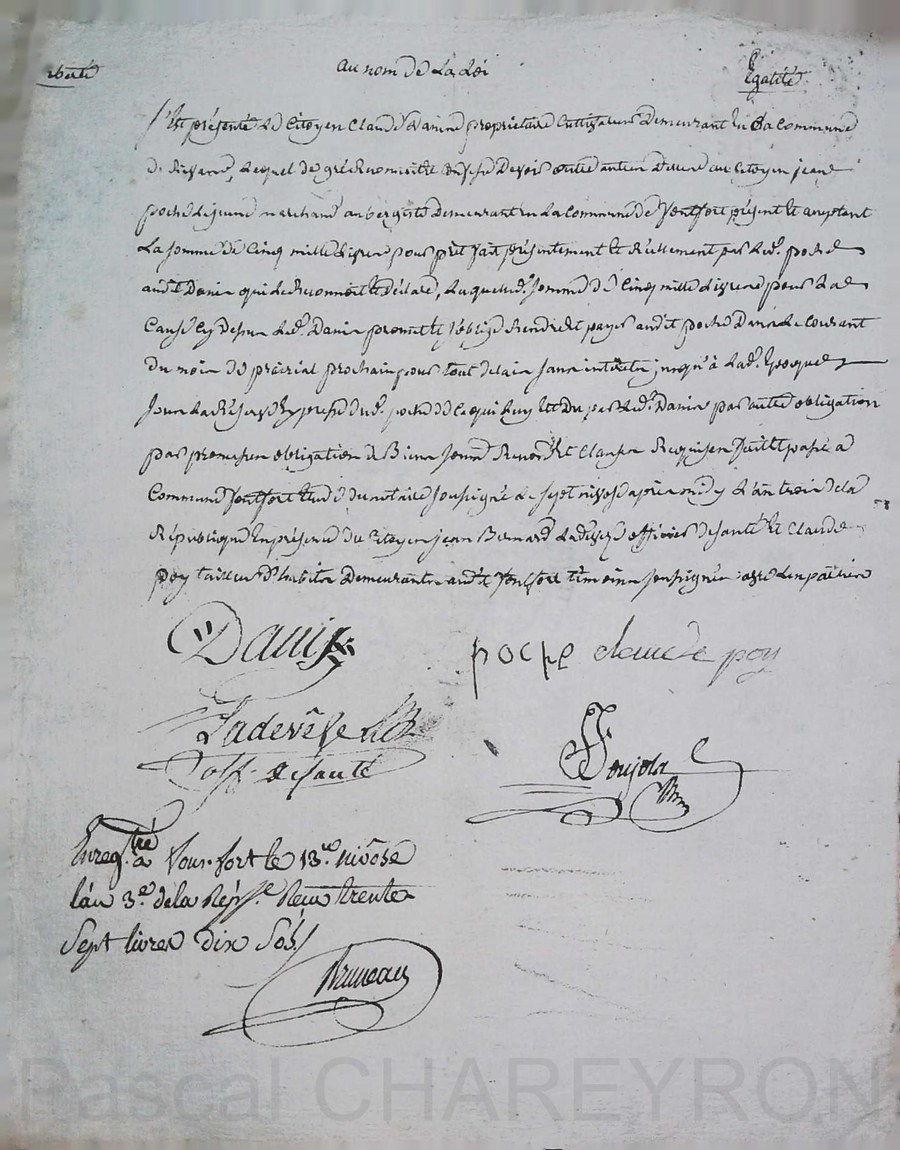 iberté Au nom de La Loi Egalité
S'est présenté Le Citoyen Claude Danis propriétaire Cultivateur Demeurant En La Commune
de Lequel de gré Reconnoit devoir au Citoyen jean
poche Lejeune marchand aubergiste Demeurant En La Commune de Fontfort présent Et acceptant
La Somme de Cinq mille Livres pour prêt fait présentement Et Réellement par Led. poche
audit Danis qui Le Reconnoit Et Déclare, Laquelle d. Somme de Cinq mille Livres pour La
Cause Cy Dessus Led. Danis promet Et S'oblige Rendre Et payer audit poche Dans Le Courant
du mois de prairial prochain pour tout délai Sans intérêts jusqu'à Lad. Epoque
Sous La Réserve Expresse dud. poche de Ce qui Luy Est Du par Led. Danis par autre obligation
par promesses obligation de Biens Soumis Renon. Et Clauses Requises fait Et passé à
Commune Fontfort Etude du notaire Soussigné Le Sept nivose après midy L'an trois de la
République En présence du Citoyen jean Bernard Ladevese officier de Santé Et Claude
poy tailleur d'habits Demeurants audit Fontfort témoins Soussignés avec Les parties
Danis poche claude poy
Ladevêse
off. de santé
Enreg.tré à Font-fort le 13.e nivôse
l'an 3.e de la Rép.e Reçu trente
Sept livres dix Sols
Bruneau
Pascal CHAREYRON